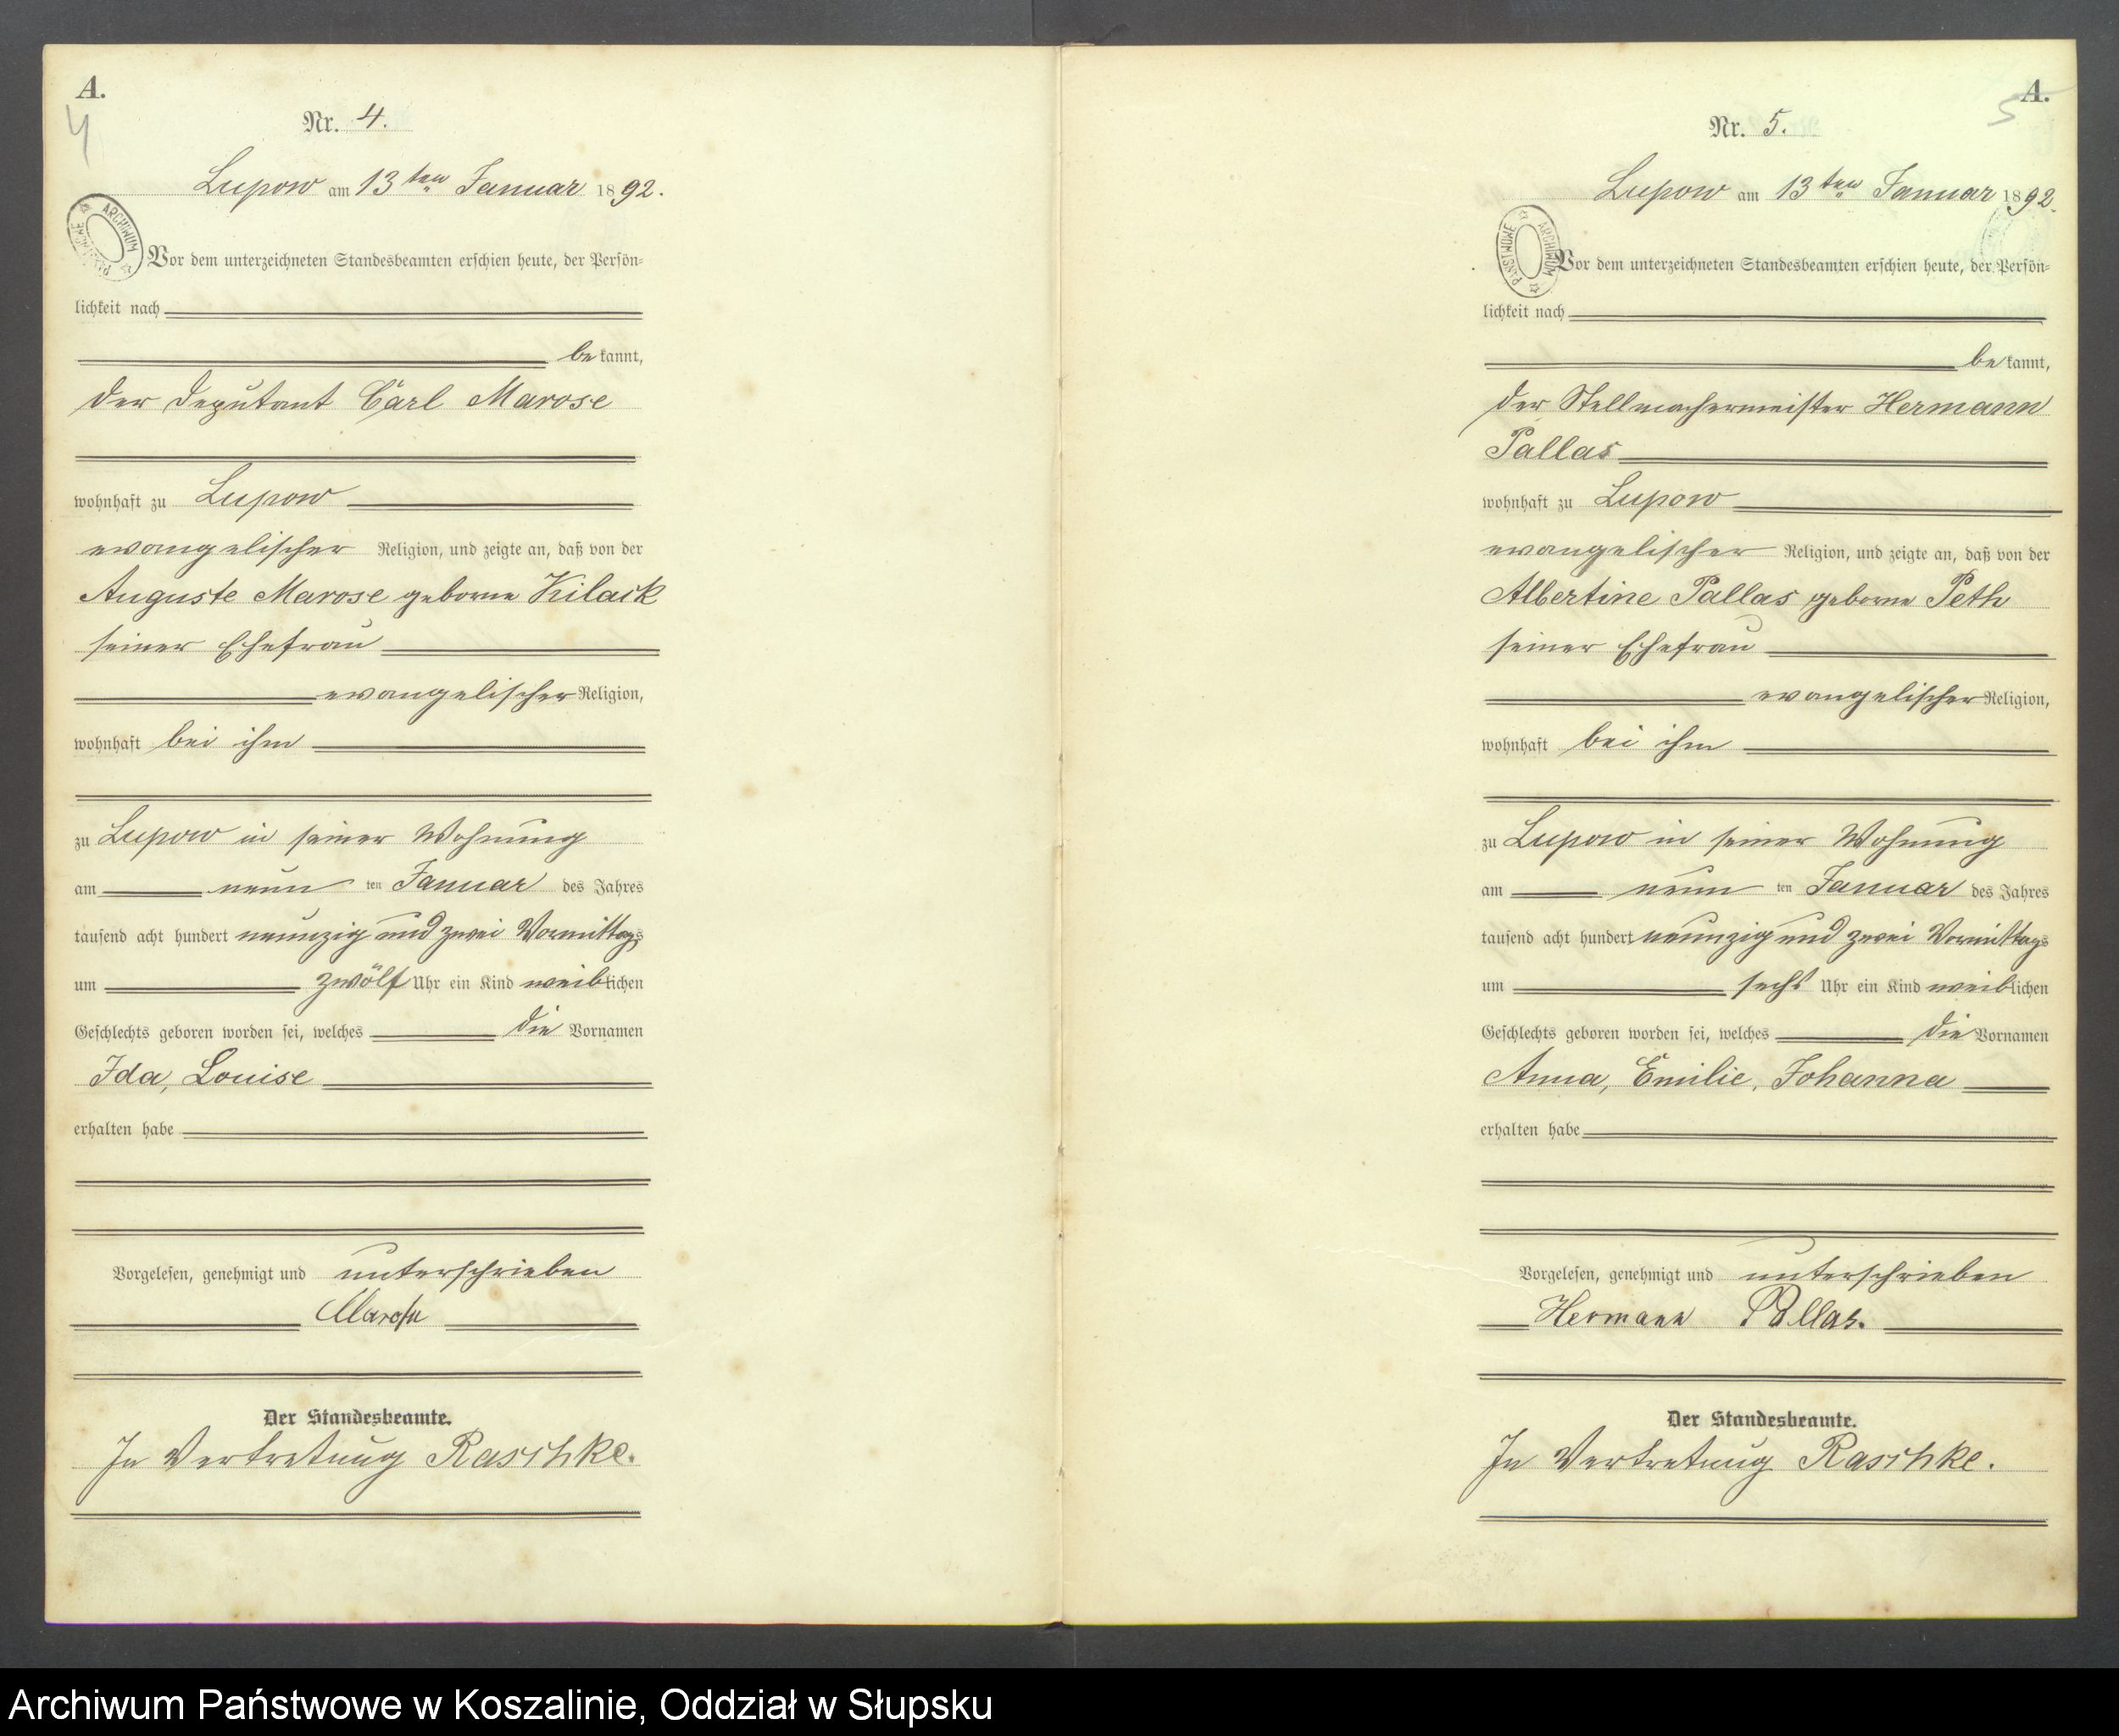 A.
4
Nr. 4.
Lupow am 13 ten Januar 1892.
ARCHIWUM PAŃSTWOWE
Vor dem unterzeichneten Standesbeamten erschien heute, der Persön-
lichkeit nach
bekannt,
der Deputant Carl Marose
wohnhaft zu Lupow
evangelischer Religion, und zeigte an, daß von der
Auguste Marose geborne Kilack
seiner Ehefrau
evangelischer Religion,
wohnhaft bei ihm
zu Lupow in seiner Wohnung
am neun ten Januar des Jahres
tausend acht hundert neunzig und zwei Vormittags
um zwölf Uhr ein Kind weiblichen
Geschlechts geboren worden sei, welches die Vornamen
Ida, Louise
erhalten habe
Vorgelesen, genehmigt und unterschrieben
Marose
Der Standesbeamte.
In Vertretung Raschke.
A.
5
Nr. 5.
Lupow am 13 ten Januar 1892.
ARCHIWUM PAŃSTWOWE
Vor dem unterzeichneten Standesbeamten erschien heute, der Persön-
lichkeit nach
bekannt,
der Stellmachermeister Hermann
Pallas
wohnhaft zu Lupow
evangelischer Religion, und zeigte an, daß von der
Albertine Pallas geborne Peth
seiner Ehefrau
evangelischer Religion,
wohnhaft bei ihm
zu Lupow in seiner Wohnung
am neun ten Januar des Jahres
tausend acht hundert neunzig und zwei Vormittags
um sechs Uhr ein Kind weiblichen
Geschlechts geboren worden sei, welches die Vornamen
Anna, Emilie, Johanna
erhalten habe
Vorgelesen, genehmigt und unterschrieben
Hermann Pallas.
Der Standesbeamte.
In Vertretung Raschke.
Archiwum Państwowe w Koszalinie, Oddział w Słupsku